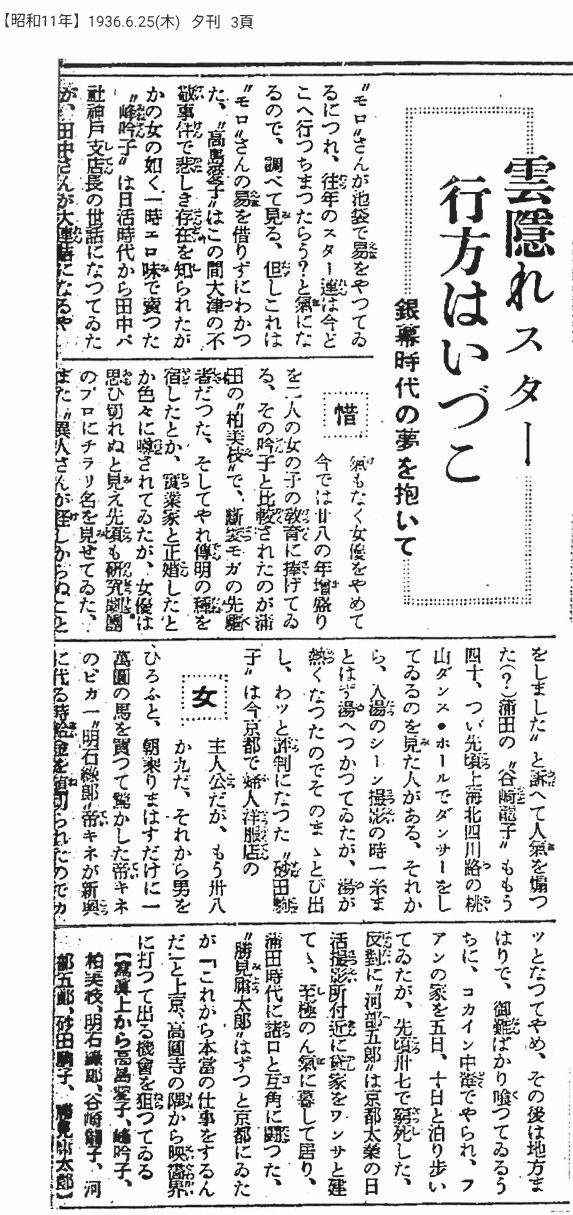 【昭和11年】1936.6.25(木) 夕刊 3頁
雲隠れスター
行方はいづこ
銀幕時代の夢を抱いて
〃モロ〃さんが池袋で易をやつてゐ
るにつれ、往年のスター連は今ど
こへ行つちまつたらう?と氣にな
るので、調べて見る、但しこれは
〃モロ〃さんの易を借りずにわかつ
た、〃高島愛子〃はこの間大津の不
敬事件で悲しき存在を知られたが
かの女の如く一時エロ味で賣つた
〃峰吟子〃は日活時代から田中パ
社神戸支店長の世話になつてゐた
が、田中さんが大連詰になるや
惜
氣もなく女優をやめて
今では廿八の年増盛り
を二人の女の子の教育に捧げてゐ
る、その吟子と比較されたのが蒲
田の〃柏美枝〃で、断髪モガの先驅
者だつた、そしてやれ傳明の種を
宿したとか、實業家と正婚したと
か色々に噂されてゐたが、女優は
思ひ切れぬと見え先頃も研究劇團
のプロにチラリ名を見せてゐた、
また〃異人さんが怪しからぬこと
をしました〃と訴へて人氣を煽つ
た(?)蒲田の〃谷崎龍子〃ももう
四十、つい先頃上海北四川路の桃
山ダンス・ホールでダンサーをし
てゐるのを見た人がある、それか
ら、入湯のシーン撮影の時一糸ま
とはず湯へつかつてゐたが、湯が
熱くなつたのでそのまゝとび出
し、わッと評判になつた〃砂田駒
子〃は今京都で婦人洋服店の
女
主人公だが、もう卅八
か九だ、それから男を
ひろふと、朝乗りまはすだけに一
萬圓の馬を買つて驚かした帝キネ
のピカ一〃明石緑郎〃帝キネが新興
に代る時給金を値切られたのでカ
ッとなつてやめ、その後は地方ま
はりで、御難ばかり喰つてゐるう
ちに、コカイン中毒でやられ、フ
アンの家を五日、十日と泊り歩い
てゐたが、先頃卅七で窮死した、
反對に〃河部五郎〃は京都太秦の日
活撮影所付近に貸家をワンサと建
てゝ、至極のん氣に暮して居り、
蒲田時代に諸口と互角に闘つた、
〃勝見庸太郎〃はずつと京都にゐた
が「これから本當の仕事をするん
だ」と上京、高圓寺の隅から映畫界
に打つて出る機會を狙つてゐる
【寫眞上から高島愛子、峰吟子、
柏美枝、明石緑郎、谷崎龍子、河
部五郎、砂田駒子、勝見庸太郎】